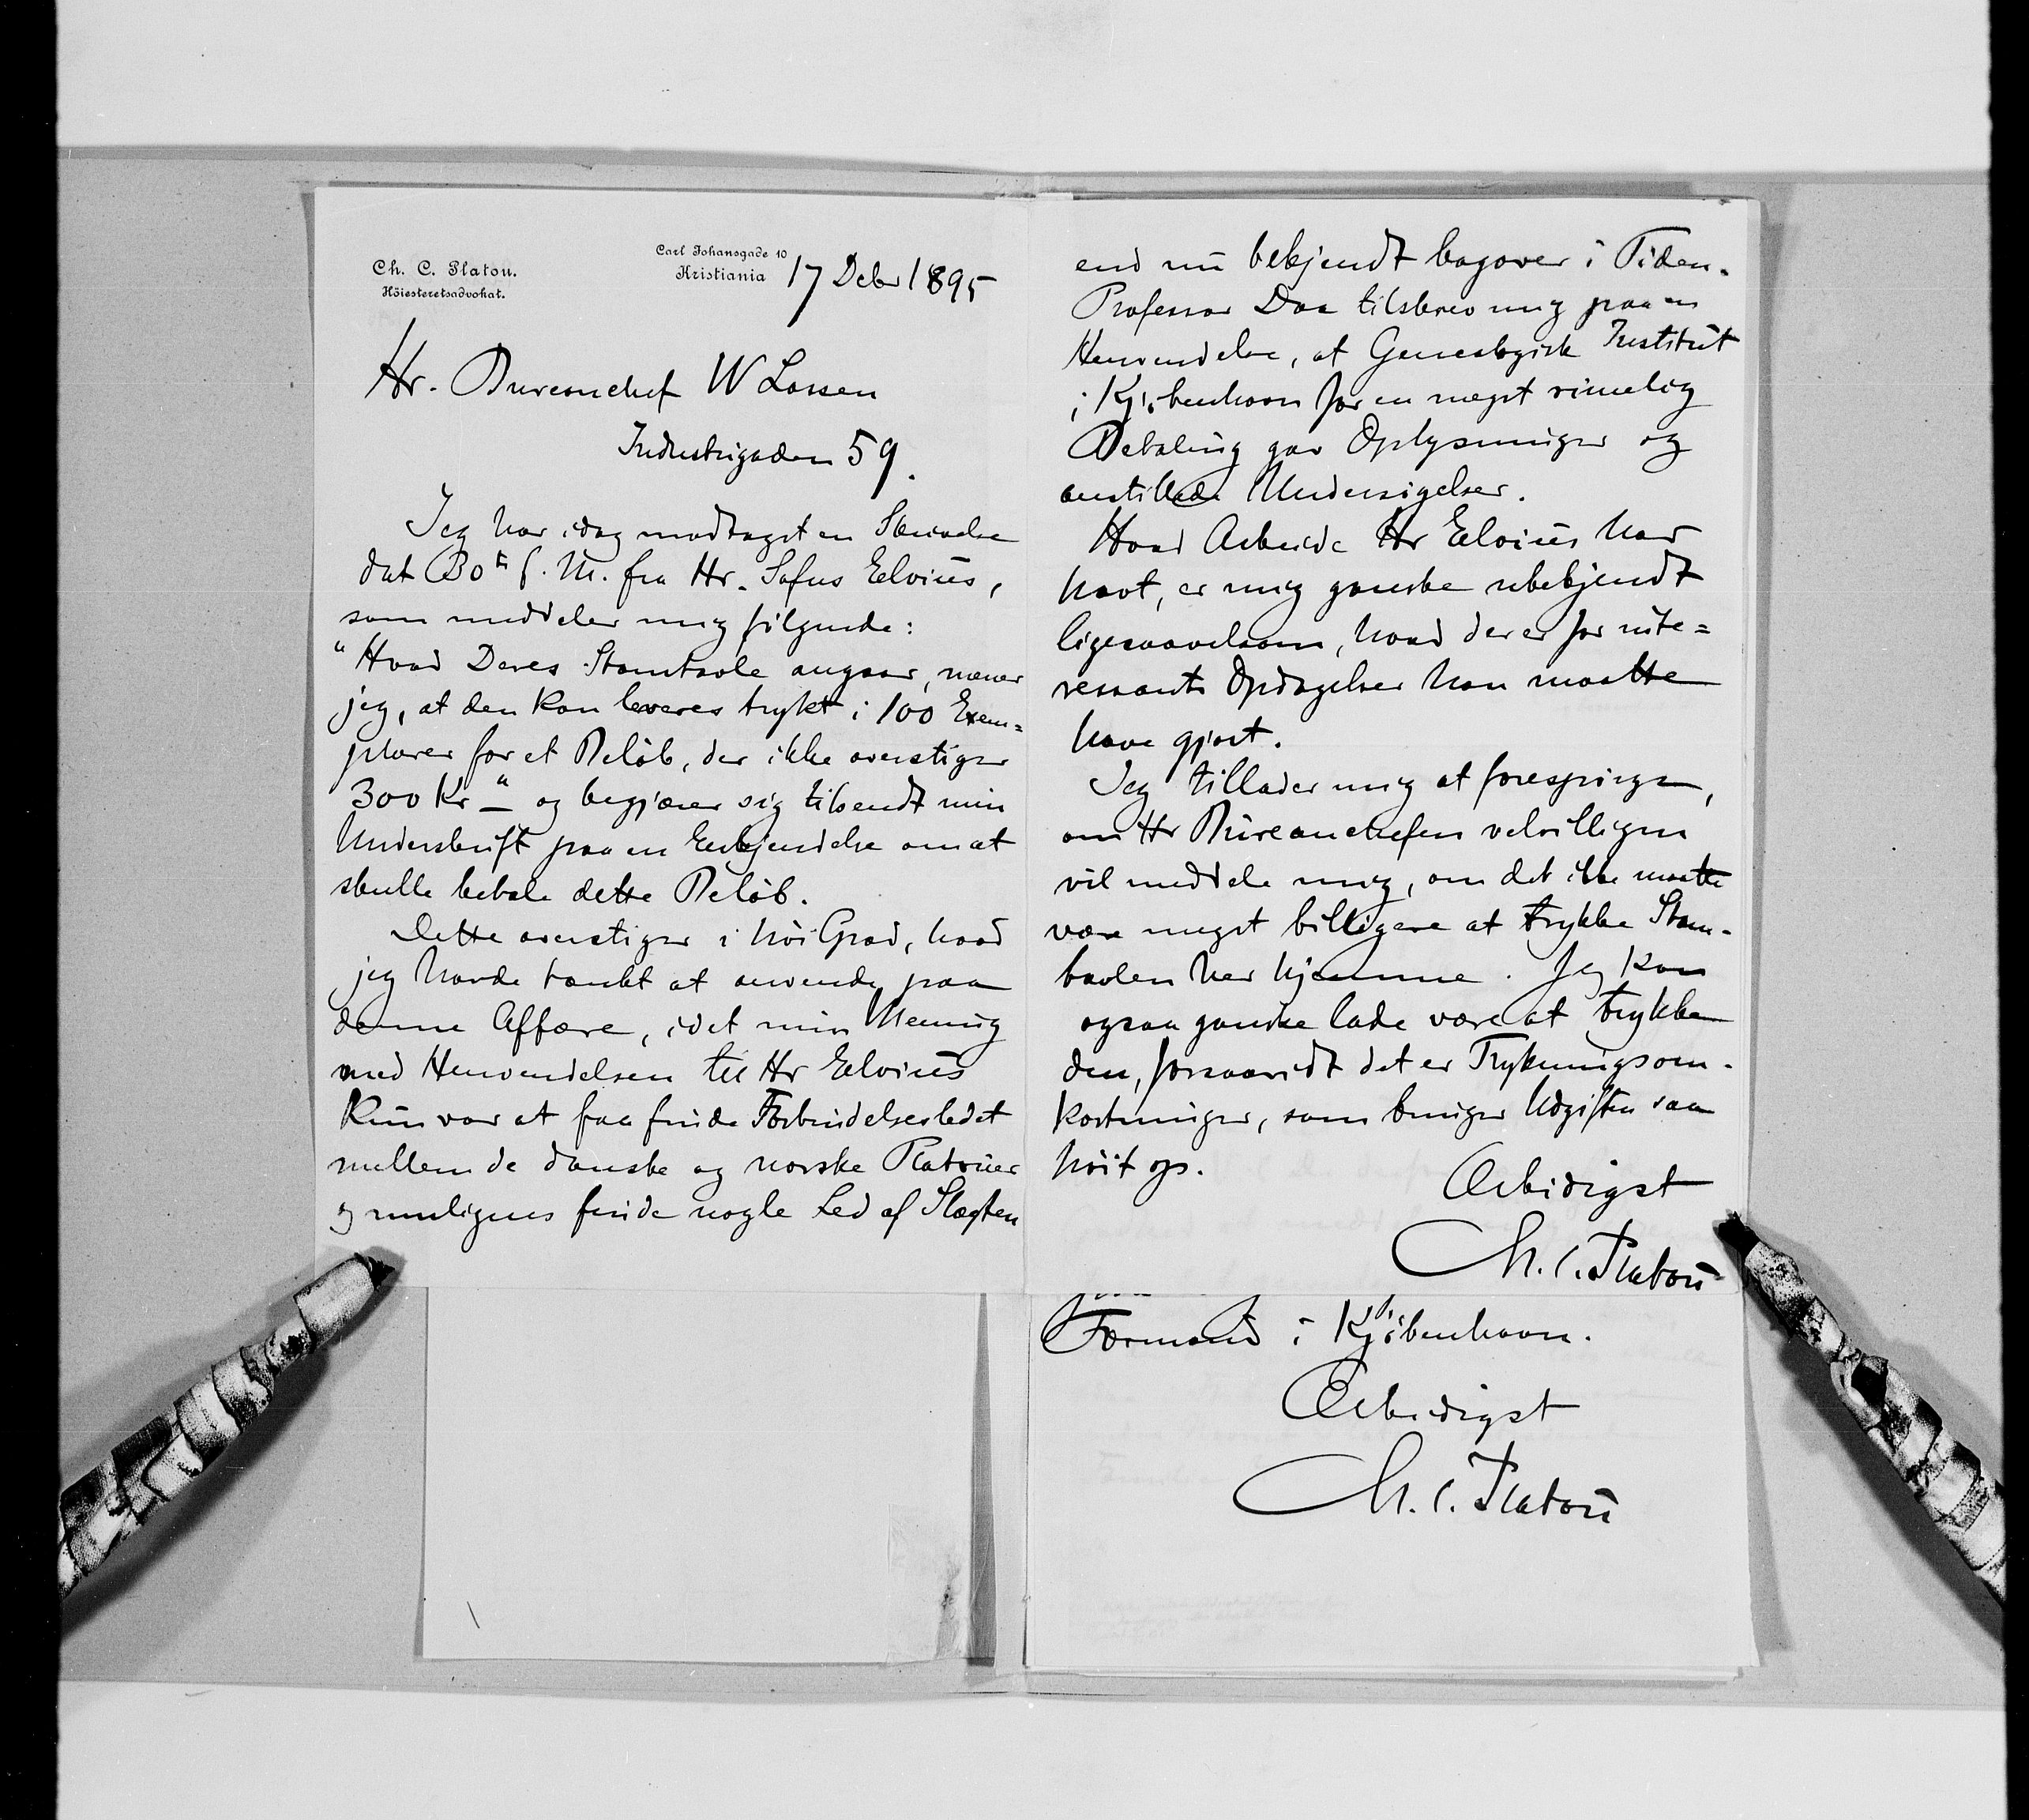 Ch. C. Platou.
Höiesteretsadvokat.
Carl Johansgade 10
Kristiania 17 Debr 1895
Hr. Bureauchef W Lassen
Industrigaden 59.
Jeg har idag modtaget en Skrivelse
dat 30te f. M. fra Hr. Sofus Elvius,
som meddeler mig følgende:
"Hvad Deres Stamtavle angaar, mener
jeg, at den kan leveres trykt i 100 Exem=
plarer for et Beløb, der ikke overstiger
300 Kr" og begjærer sig tilsendt min
Underskrift paa en Erkjendelse om at
skulle betale dette Beløb.
Dette overstiger i høi Grad, hvad
jeg havde tænkt at anvende paa
denne Affære, idet min Mening
med Henvendelsen til Hr Elvius
kun var at faa finde Forbindelsesledet
mellem de danske og norske Platouer
og muligens finde nogle Led af Slægten
end nu bekjendt bagover i Tiden.
Professor Daa tilskrev mig paa en
Henvendelse, at Genealogisk Institut
i Kjøbenhavn for en meget rimelig
Betaling gav Oplysninger og
anstillede Undersøgelser.
Hvad Arbeide Hr Elvius har
havt, er mig ganske ubekjendt
ligesaavelsom, hvad der er for inte=
ressante Opdagelser han maatte
have gjort.
Jeg tillader mig at forespørge,
om Hr Bureauchefen velvilligen
vil meddele mig, om det ikke maatte
være meget billigere at trykke Stam-
tavlen her hjemme. Jeg kan
ogsaa ganske lade være at trykke
den, forsaavidt det er Trykningsom-
kostninger, som bringer Udgiften saa
høit op.
Ærbødigst
Ch. C. Platou
Formand i Kjøbenhavn.
Ærbødigst
Ch. C. Platou